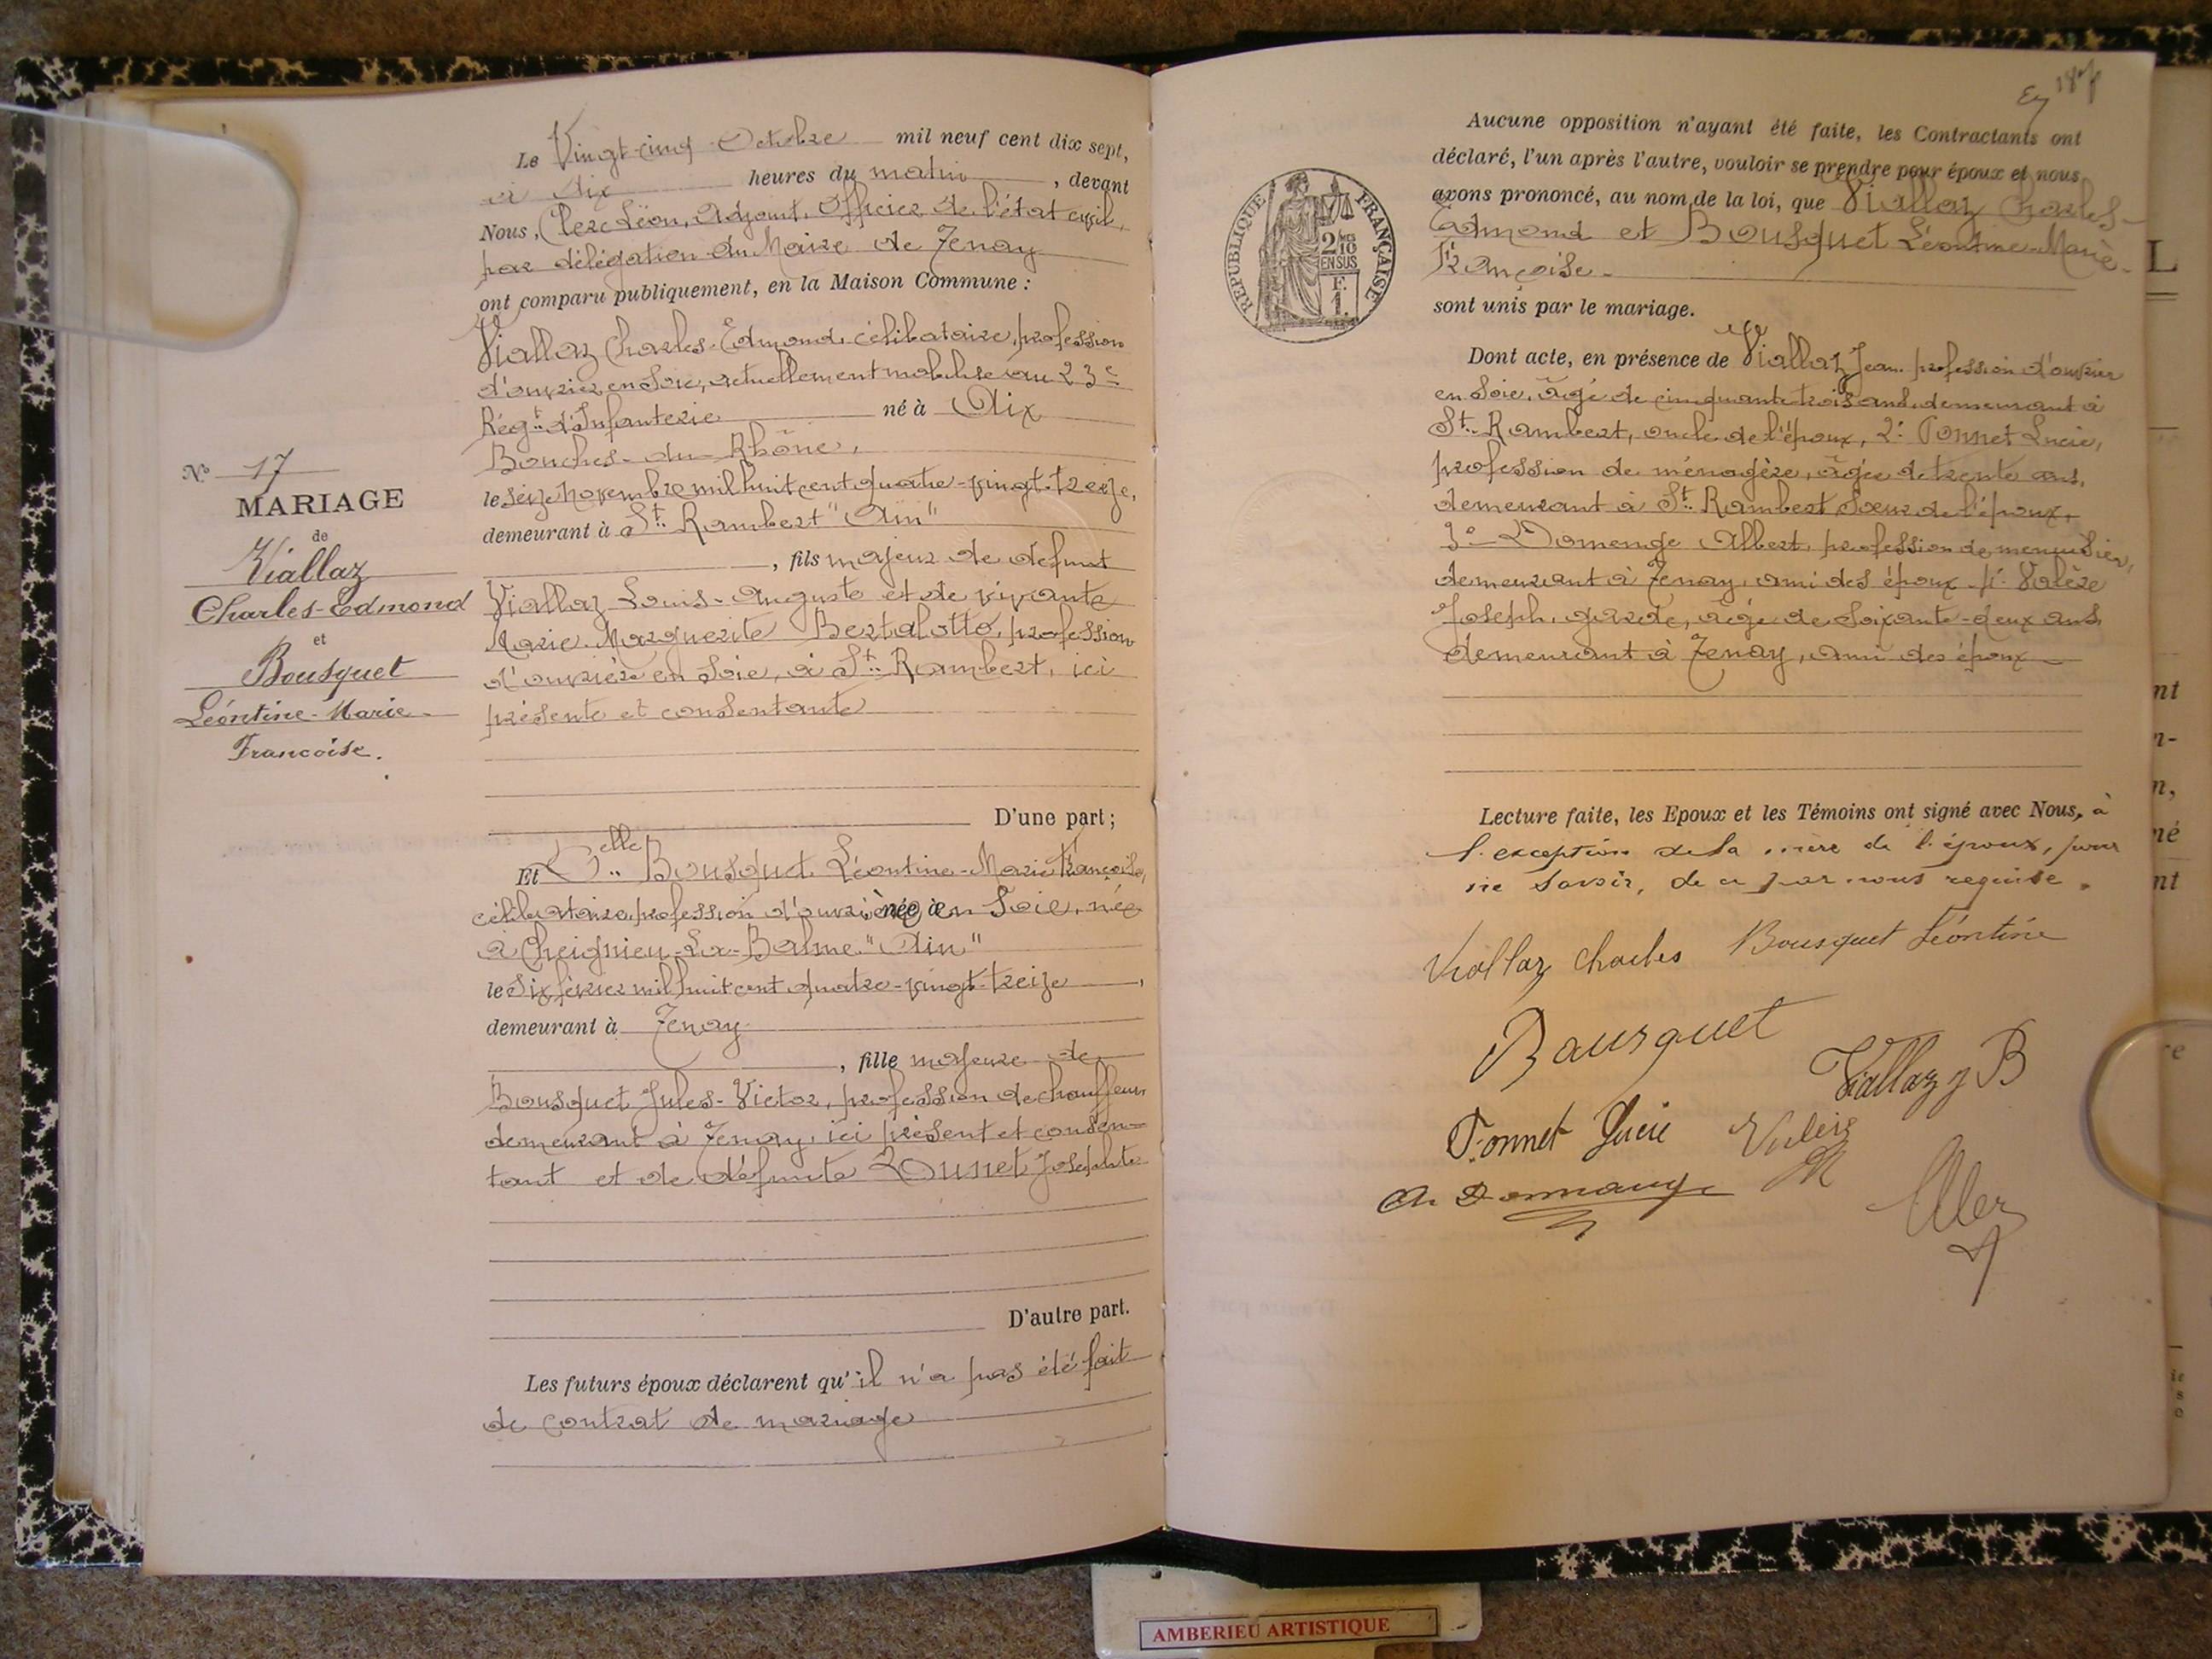 Le Vingt-cinq Octobre mil neuf cent dix sept,
à dix heures du matin, devant
Nous, Clerc Léon, Adjoint, Officier de l'état civil,
par délégation du Maire de Tenay
ont comparu publiquement, en la Maison Commune :
Viallaz Charles-Edmond, célibataire, profession
d'ouvrier en Soie, actuellement mobilisé au 23e
Régt d'Infanterie né à Aix
Bouches-du-Rhône,
le seize novembre mil huit cent quatre-vingt-treize,
demeurant à St Rambert "Ain"
, fils majeur de défunt
Viallaz Louis-Auguste et de vivante
Marie-Marguerite Bertalotto, profession
d'ouvrière en Soie, à St Rambert, ici
présente et consentante
D'une part ;
N° 17
MARIAGE
de
Viallaz
Charles-Edmond
et
Bousquet
Léontine-Marie
Francoise.
Et Delle Bousquet Léontine-Marie Françoise,
célibataire, profession d'ouvrière en Soie, née
à Cheignieu-La-Balme "Ain"
le six février mil huit cent quatre-vingt-treize,
demeurant à Tenay
, fille majeure de
Bousquet Jules-Victor, profession de chauffeur
demeurant à Tenay, ici présent et consen-
tant et de défunte Josephte
D'autre part.
Les futurs époux déclarent qu'il n'a pas été fait
de contrat de mariage
Aucune opposition n'ayant été faite, les Contractants ont
déclaré, l'un après l'autre, vouloir se prendre pour époux et nous
avons prononcé, au nom de la loi, que Viallaz Charles-
Edmond et Bousquet Léontine-Marie-
Françoise
sont unis par le mariage.
RÉPUBLIQUE FRANÇAISE
2/10 MES
EN SUS
F.
1.
Dont acte, en présence de Viallaz Jean profession d'ouvrier
en Soie, âgé de cinquante trois ans, demeurant à
St Rambert, oncle de l'époux, 2° Tonnet Lucie,
profession de ménagère, âgée de trente ans,
demeurant à St Rambert Soeur de l'époux,
3° Domenge Albert, profession de menuisier,
demeurant à Tenay, ami des époux 4° Valère
Joseph, garde, âgé de Soixante-deux ans,
demeurant à Tenay, ami des époux
Lecture faite, les Epoux et les Témoins ont signé avec Nous, à
l'exception de la mère de l'époux, pour
ne Savoir, de ce par nous requise.
Viallaz Charles Bousquet Léontine
Bousquet
Viallaz J B
Tonnet Lucie
AMBERIEU ARTISTIQUE